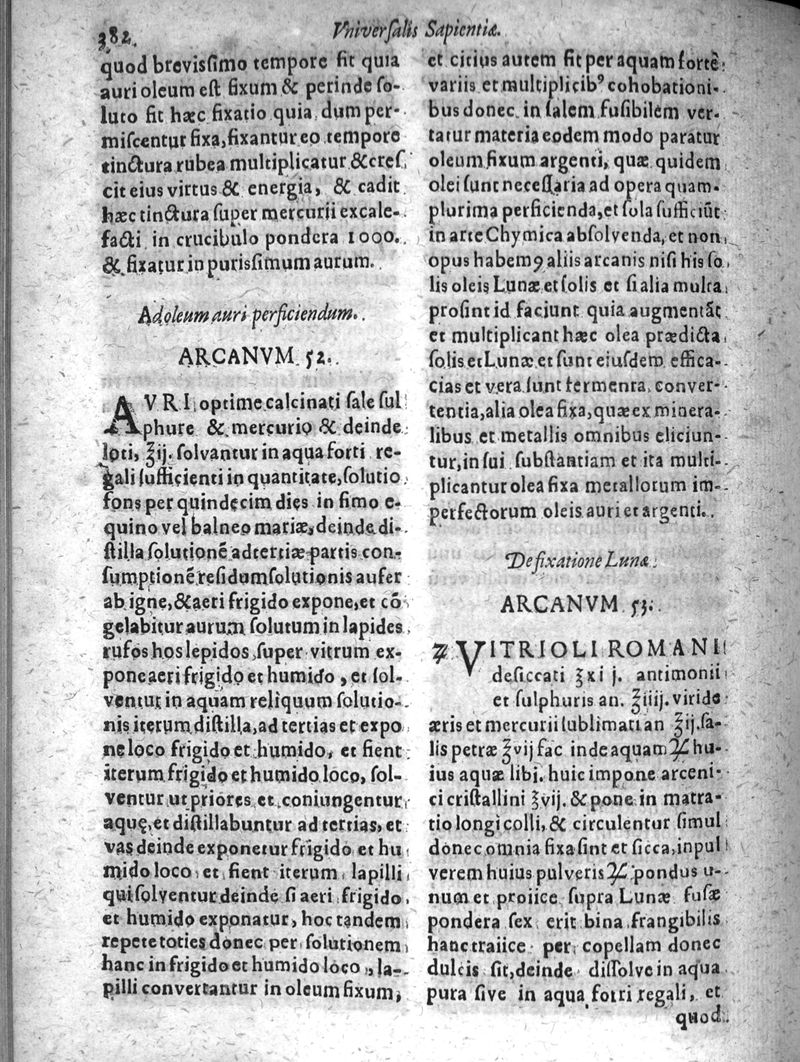 382.
Vniversalis Sapientiæ.
quod brevissimo tempore fit quia
auri oleum est fixum & perinde so-
luto fit hæc fixatio quia dum per-
miscentur fixa, fixantur eo tempore
tinctura rubea multiplicatur & cres
cit eius virtus & energia, & cadit
hæc tinctura super mercurii excale-
facti in crucibulo pondera 1000.
& fixatur in purissimum aurum.
Ad oleum auri perficiendum.
ARCANVM 52.
AVRI optime calcinati sale sul
phure & mercurio & deinde
loti, ℥ij. solvantur in aqua forti re-
gali sufficienti in quantitate, solutio
fons per quindecim dies in fimo e-
quino vel balneo mariæ, deinde di-
stilla solutionē ad tertiæ partis con-
sumptionē, residum solutionis aufer
ab igne, & aeri frigido expone, et cō
gelabitur aurum solutum in lapides
rufos hos lepidos super vitrum ex-
pone aeri frigido et humido, et sol-
ventut in aquam reliquum solutio-
nis iterum distilla, ad tertias et expo
ne loco frigido et humido, et fient
iterum frigido et humido loco, sol-
ventur ut priores et coniungentur
aquę, et distillabuntur ad tertias, et
vas deinde exponetur frigido et hu
mido loco et fient iterum lapilli
qui solventur deinde si aeri frigido
et humido exponatur, hoc tandem
repete toties donec per solutionem
hanc in frigido et humido loco, la-
pilli convertantur in oleum fixum,
et citius autem fit per aquam fortē
variis et multiplicibꝰ cohobationi-
bus donec in salem fusibilem ver-
tatur materia eodem modo paratur
oleum fixum argenti, quæ quidem
olei sunt necessaria ad opera quam-
plurima perficienda, et sola sufficiūt
in arte Chymica absolvenda, et non
opus habemꝰ aliis arcanis nisi his so
lis oleis Lunæ et solis et si alia multa
prosint id faciunt quia augmentāt
et multiplicant hæc olea prædicta
solis et Lunæ et sunt eiusdem effica-
cias et vera sunt fermenra conver-
tentia, alia olea fixa, quæ ex minera-
libus et metallis omnibus eliciun-
tur, in sui substantiam et ita multi-
plicantur olea fixa metallorum im-
perfectorum oleis auri et argenti.
De fixatione Lunæ.
ARCANVM 53.
℞ VITRIOLI ROMANI
desiccati ℥xi j. antimonii
et sulphuris an. ℥iiij. virido
æris et mercurii sublimati an ℥ij. sa-
lis petræ ℥vij fac inde aquam ℞ hu-
ius aquæ libj. huic impone arceni-
ci cristallini ℥vij. & pone in matra-
tio longi colli, & circulentur simul
donec omnia fixa sint et sicca, in pul
verem huius pulveris ℞ pondus u-
num et proiice supra Lunæ fusæ
pondera sex erit bina frangibilis
hanc traiice per copellam donec
dulcis sit, deinde dissolve in aqua
pura sive in aqua fotri regali, et
quod